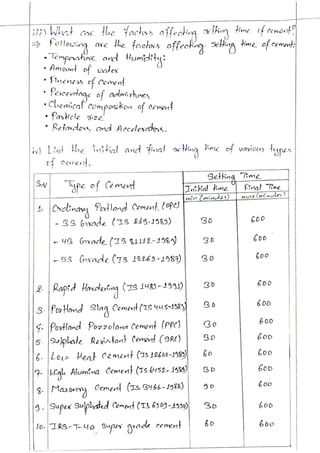 iii) What are the factors affecting setting time of cement?
⇒ Following are the factors affecting setting time of cement:
• Temperature and Humidity:
• Amount of water
• Fineness of cement
• Percentage of admixtures
• Chemical composition of cement
• Particle size
• Retarders and Accelerators.
iv) List the initial and final setting time of various types
of cement.
S.N Type of Cement Setting Time
Initial time Final Time
min (minutes) max (minutes)
1. Ordinary Portland Cement (OPC)
- 33 Grade (IS 269-1989) 30 600
- 43 Grade (IS 8112-1989) 30 600
- 53 Grade (IS 12269-1987) 30 600
2. Rapid Hardening (IS 1489-1991) 30 600
3. Portland Slag Cement (IS 445-1989) 30 600
4. Portland Pozzolana Cement (PPC) 30 600
5. Sulphate Resistant Cement (SRC) 30 600
6. Low Heat Cement (IS 12600-1989) 60 600
7. High Alumina Cement (IS 6452-1989) 30 600
8. Masonry Cement (IS 3466-1988) 90 600
9. Super Sulphated Cement (IS 6909-1990) 30 600
10. IRS-T-40 super grade cement 60 600